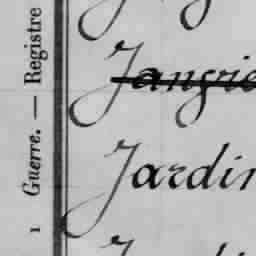 1 Guerre. — Registre
Jangrie
Jardin